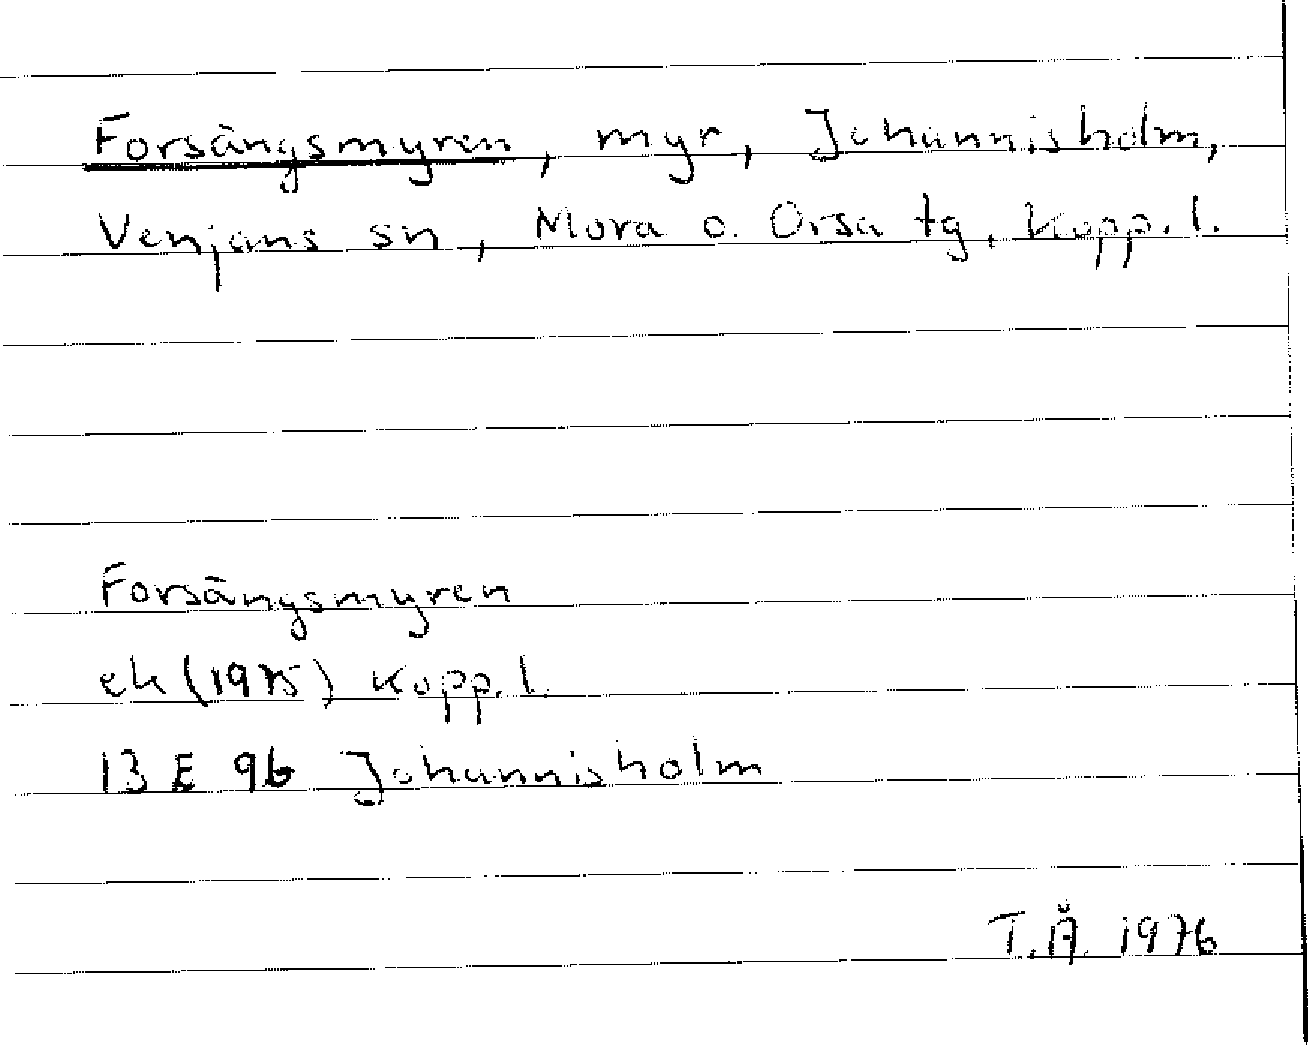 Forsängsmyren, myr, Johannisholm,
Venjans sn, Mora o. Orsa tg, Kopp. l.
Forsängsmyren
ek (1975) Kopp. l.
13 E 9b Johannisholm
T.Å. 1976